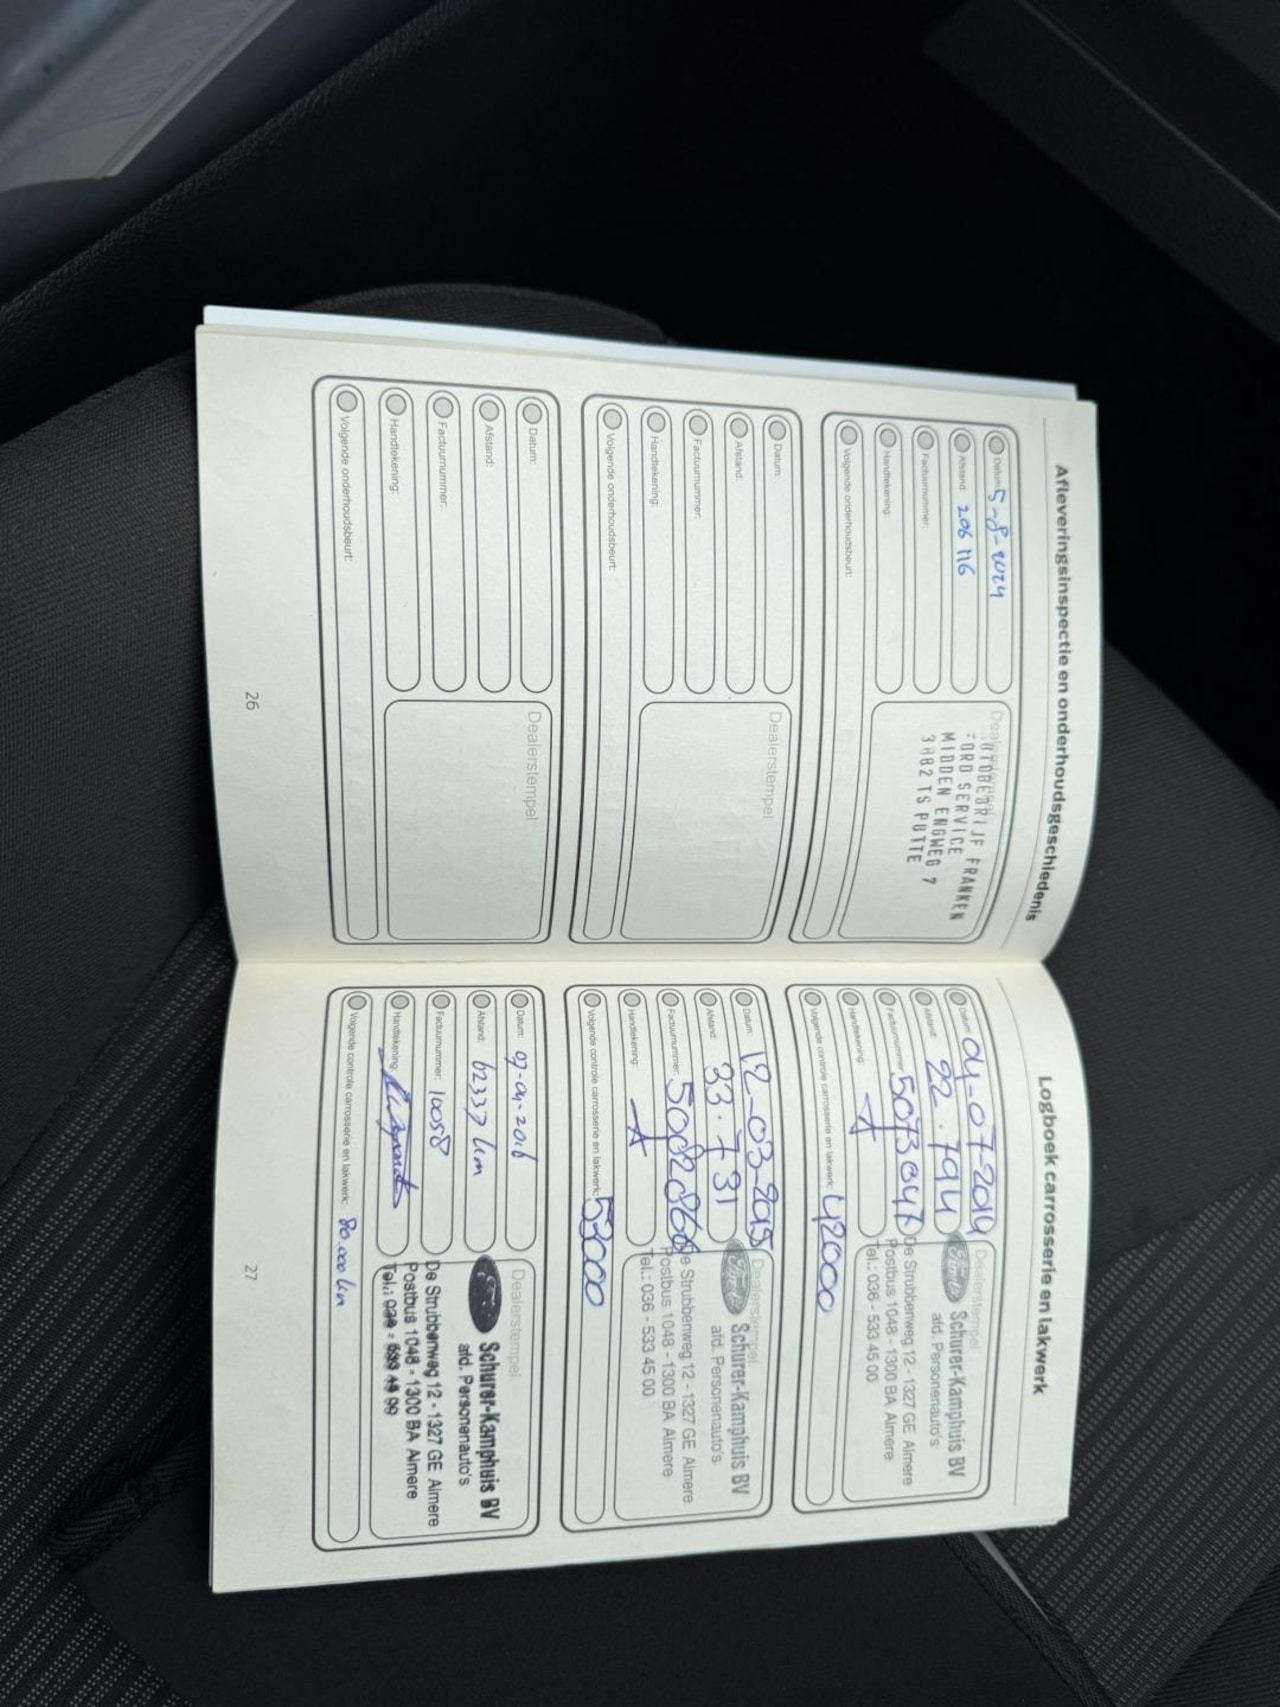 Afleveringsinspectie en onderhoudsgeschiedenis
Datum: 5-8-2024
Afstand: 206 116
Factuurnummer:
Handtekening:
Volgende onderhoudsbeurt:
Dealerstempel
FRANKEN
FORD SERVICE
MIDDEN ENGWEG 7
3882 TS PUTTE
Datum:
Afstand:
Factuurnummer:
Handtekening:
Volgende onderhoudsbeurt:
Dealerstempel
Datum:
Afstand:
Factuurnummer:
Handtekening:
Volgende onderhoudsbeurt:
Dealerstempel
26
Logboek carrosserie en lakwerk
Datum: 04-07-2014
Afstand: 22.794
Factuurnummer: 5073047
Handtekening:
Volgende controle carrosserie en lakwerk: 42000
Dealerstempel
Ford
Schurer-Kamphuis BV
afd. Personenauto's
De Strubbenweg 12 - 1327 GE Almere
Postbus 1048 - 1300 BA Almere
Tel.: 036 - 533 45 00
Datum: 12-03-2015
Afstand: 33.731
Factuurnummer: 5082868
Handtekening:
Volgende controle carrosserie en lakwerk: 53000
Dealerstempel
Ford
Schurer-Kamphuis BV
afd. Personenauto's
De Strubbenweg 12 - 1327 GE Almere
Postbus 1048 - 1300 BA Almere
Tel.: 036 - 533 45 00
Datum: 07-04-2016
Afstand: 62337 km
Factuurnummer: 10058
Handtekening:
Volgende controle carrosserie en lakwerk: 80.000 km
Dealerstempel
Schurer-Kamphuis BV
afd. Personenauto's
De Strubbenweg 12 - 1327 GE Almere
Postbus 1048 - 1300 BA Almere
Tel.:
27